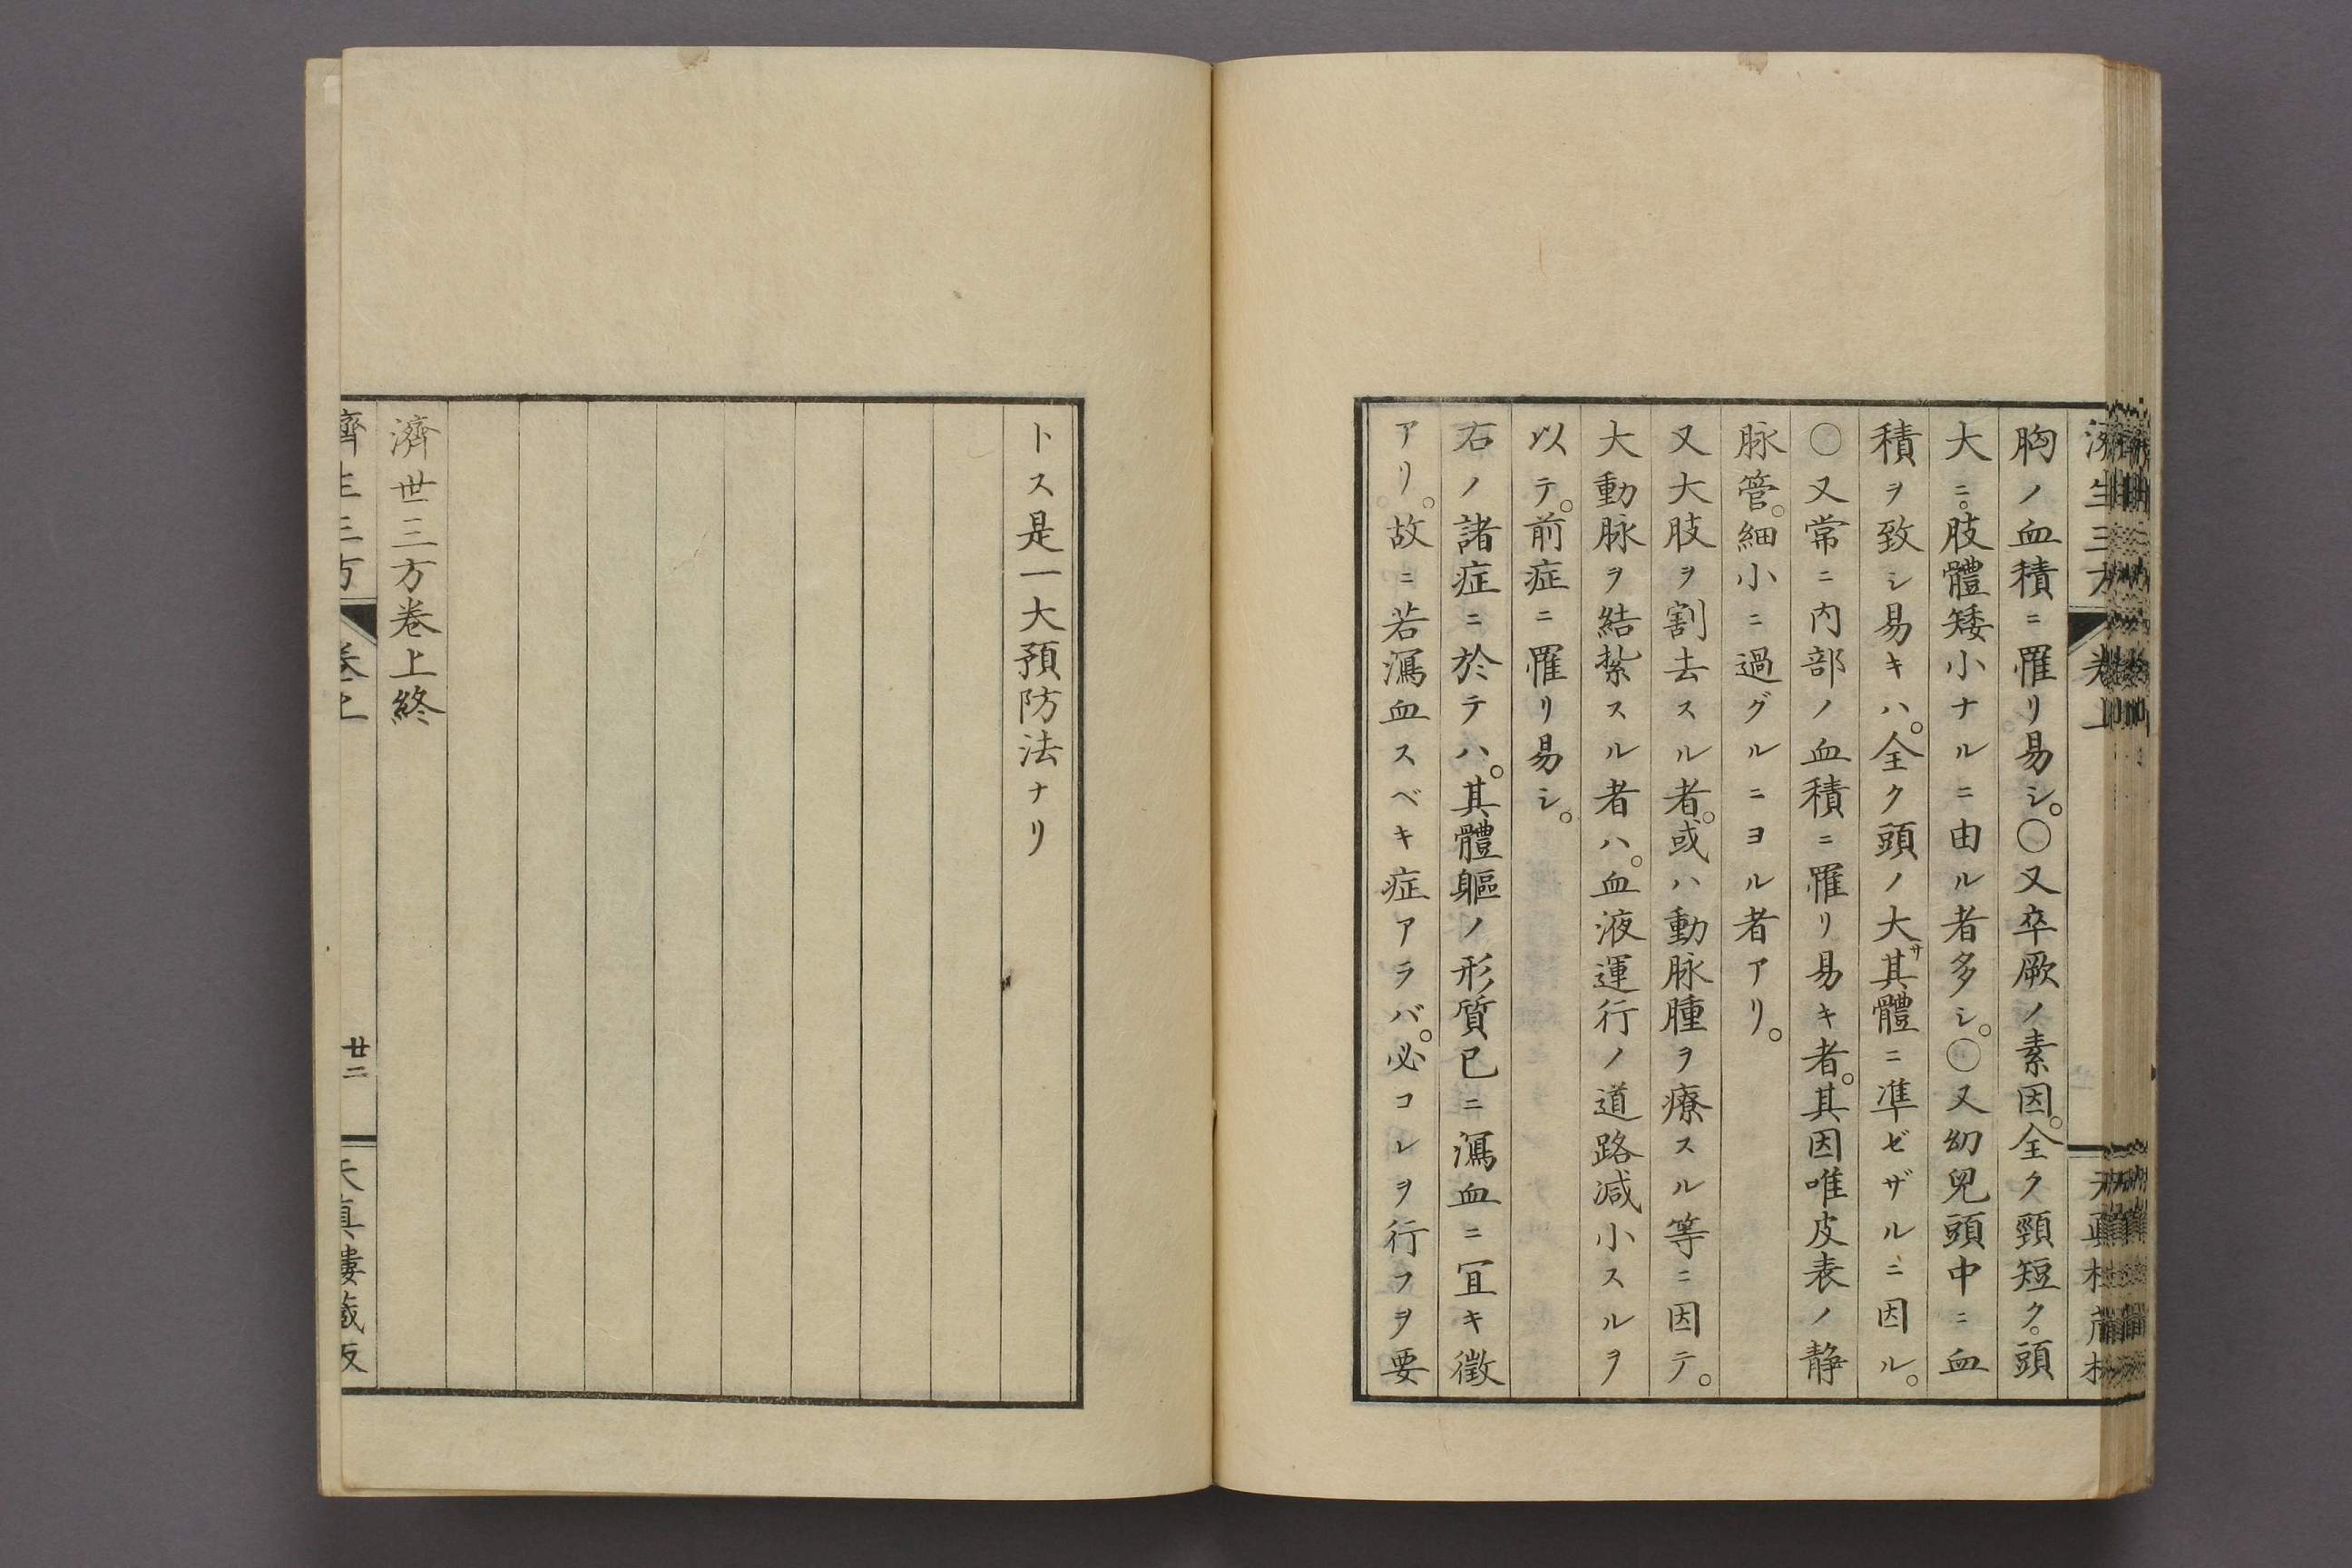 胸ノ血積ニ罹リ易シ。〇又卒厥ノ素因。全ク頸短ク。頭
大ニ。肢體矮小ナルニ由ル者多シ。〇又幼兒頭中ニ血
積ヲ致シ易キハ。全ク頭ノ大サ其體ニ準ゼザルニ因ル。
〇又常ニ内部ノ血積ニ罹リ易キ者。其因唯皮表ノ静
脉管。細小ニ過グルニヨル者アリ。
又大肢ヲ割去スル者。或ハ動脉腫ヲ療スル等ニ因テ。
大動脉ヲ結紮スル者ハ。血液運行ノ道路減小スルヲ
以テ。前症ニ罹リ易シ。
右ノ諸症ニ於テハ。其體軀ノ形質已ニ瀉血ニ冝キ徴
アリ。故ニ若瀉血スベキ症アラバ。必コレヲ行フヲ要
トス是一大預防法ナリ
濟世三方巻上終
濟生三方 巻上 廿二 天真樓藏板